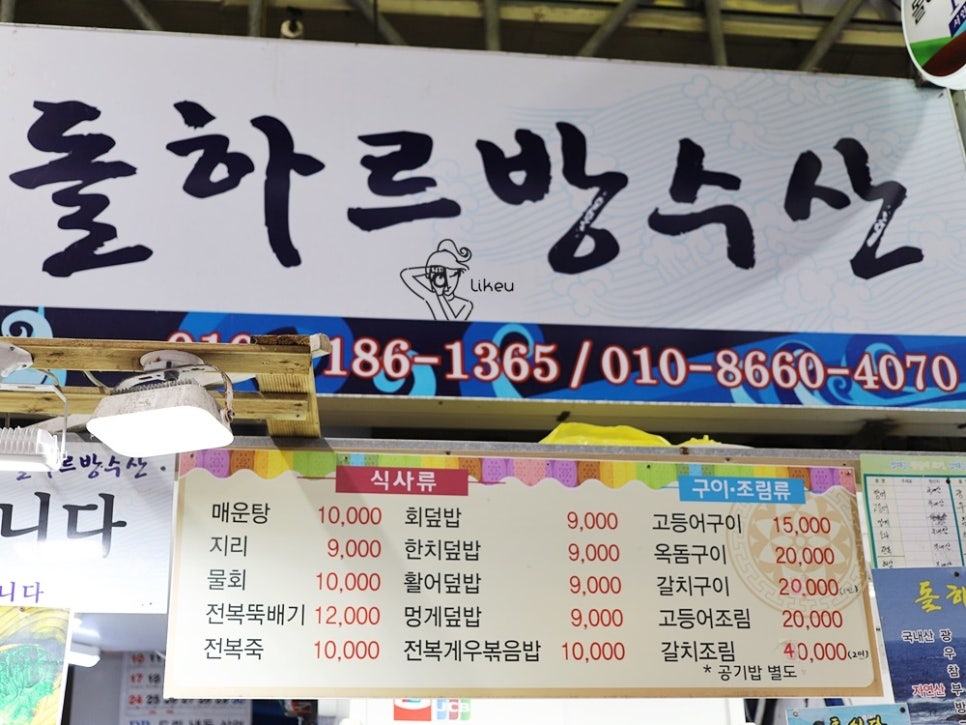 돌하르방수산
Likeu
186-1365 / 010-8660-4070
르방수산
니다
식사류
구이·조림류
매운탕 10,000 회덮밥 9,000 고등어구이 15,000
지리 9,000 한치덮밥 9,000 옥돔구이 20,000
물회 10,000 활어덮밥 9,000 갈치구이 20,000
전복뚝배기 12,000 멍게덮밥 9,000 고등어조림 20,000
전복죽 10,000 전복게우볶음밥 10,000 갈치조림 40,000(2인)
* 공기밥 별도
니다
돌하
국내산 광
우
참
자연산 부
방
JCB